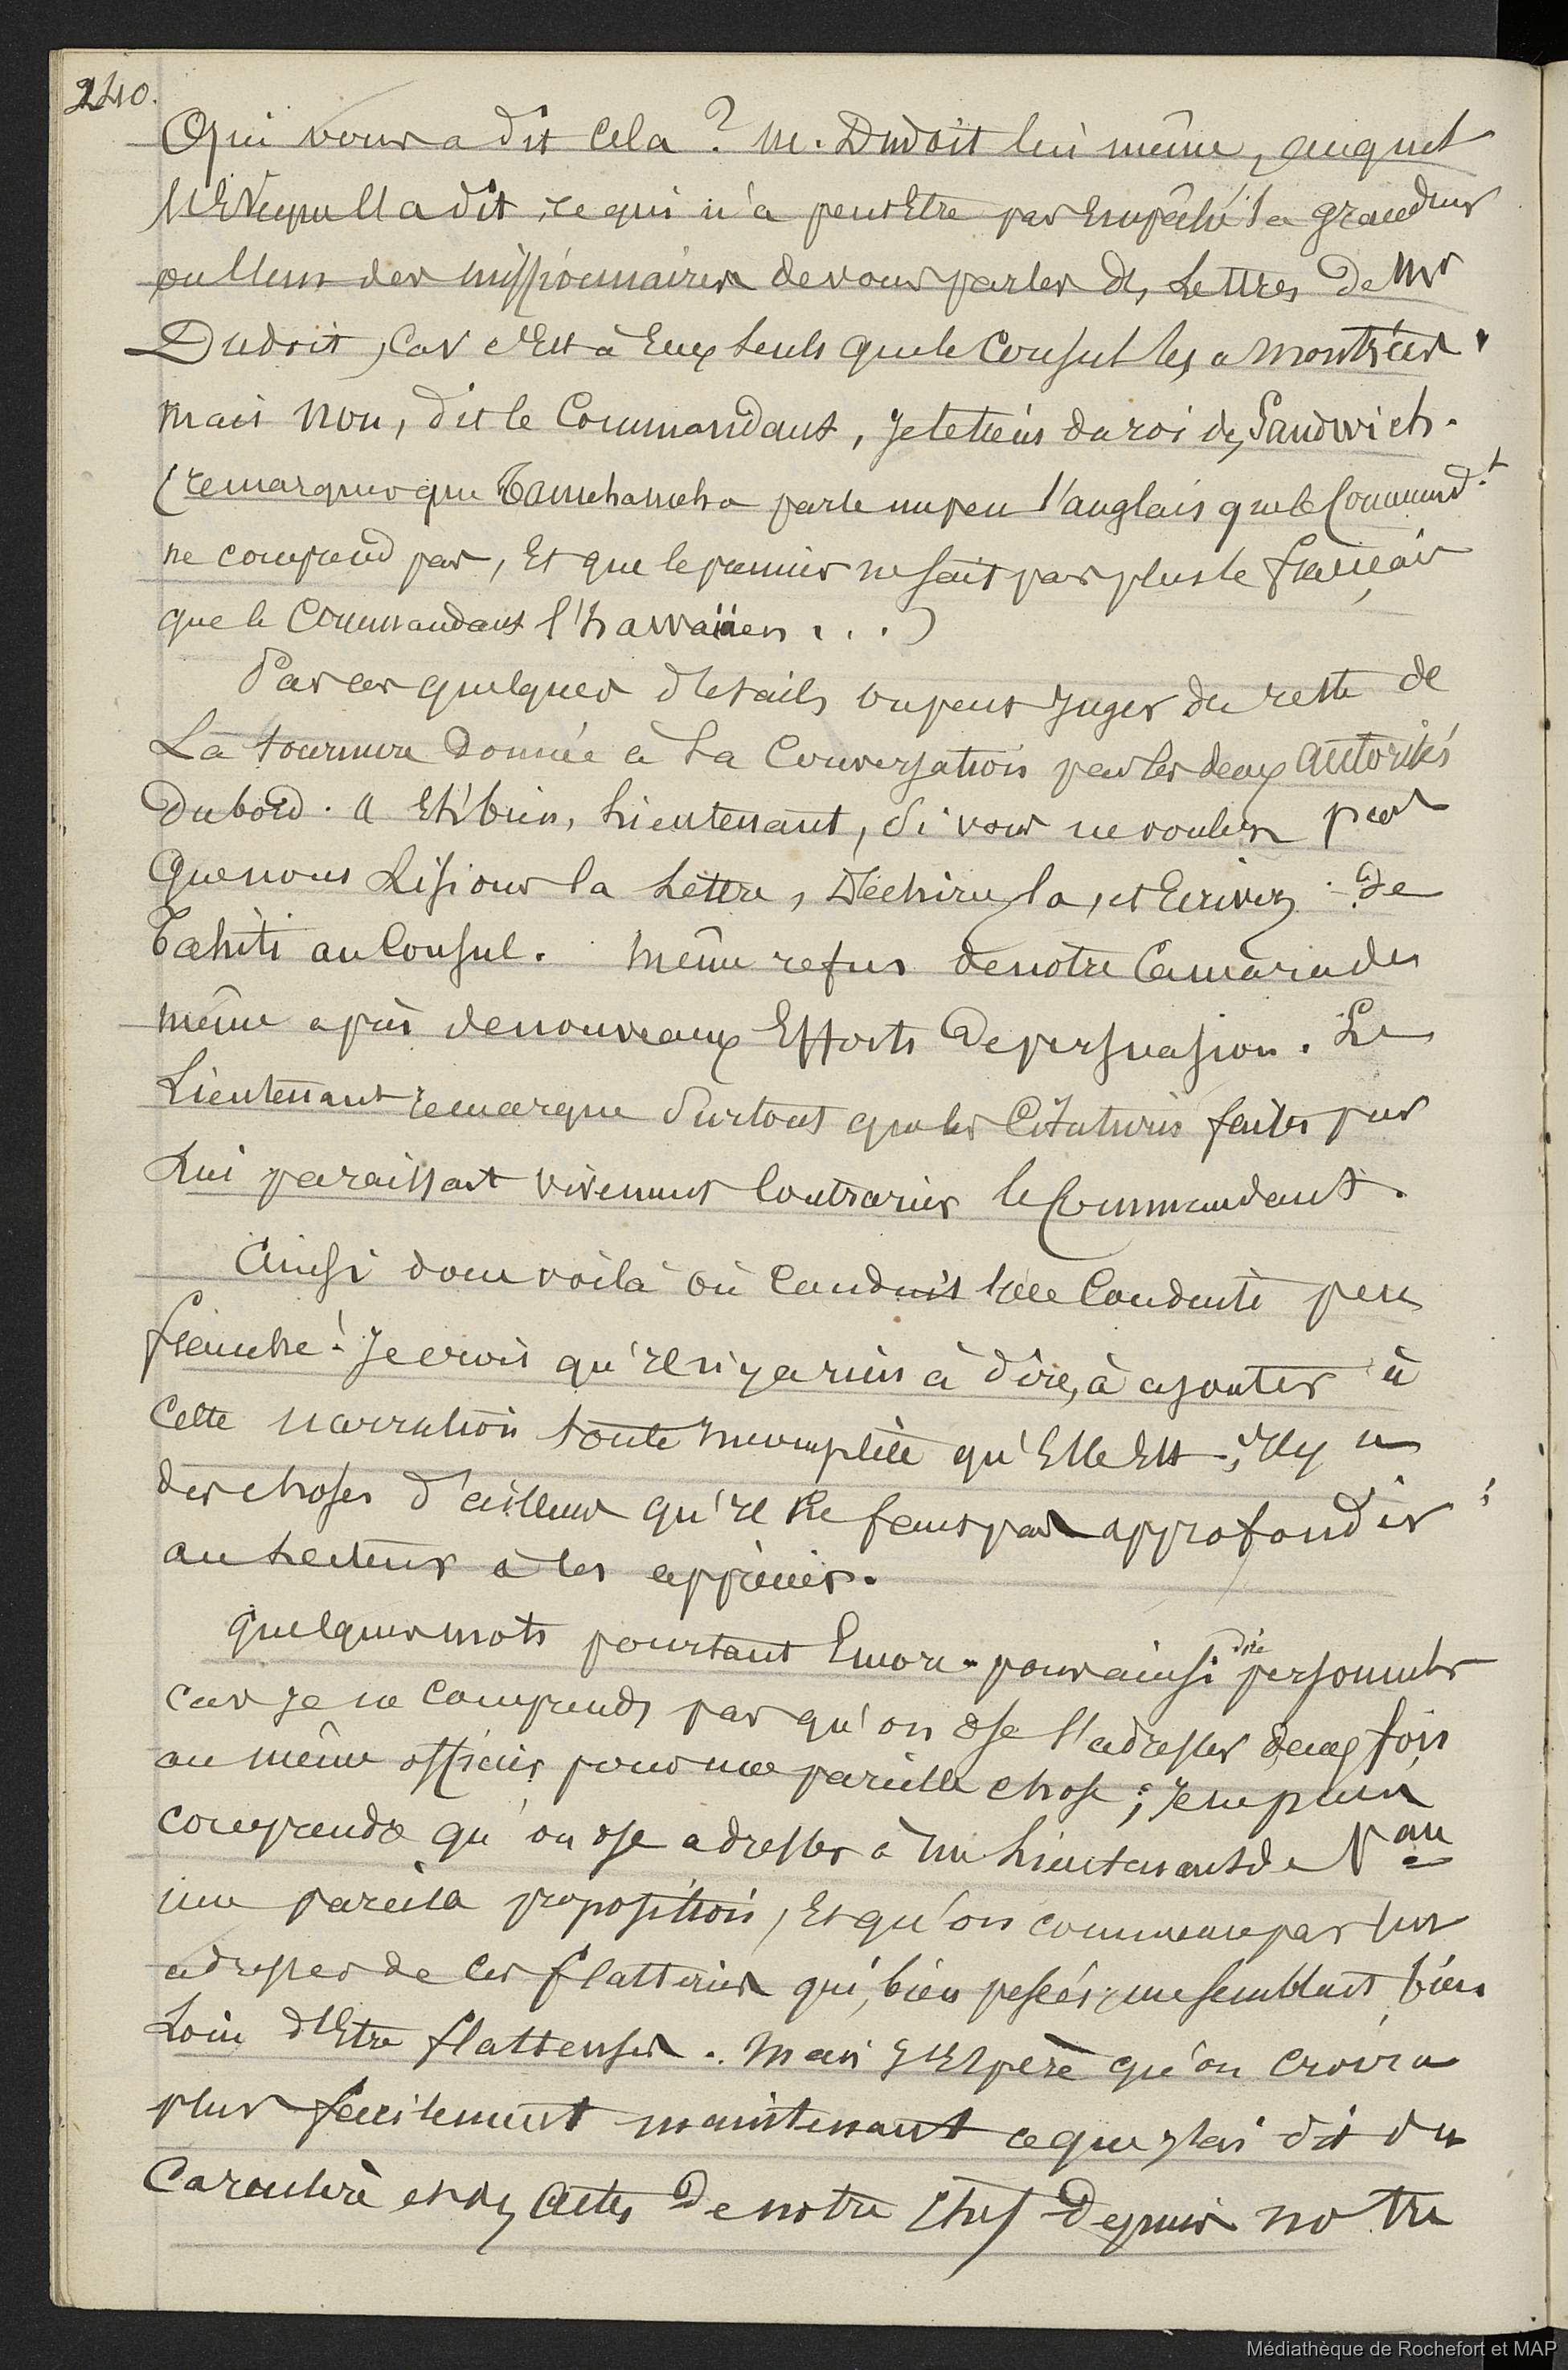 240.
Qui vous a dit cela ? M. Dudoit lui même, auquel
l'Evêque l'a dit, ce qui n'a peut Etre pas Empêché sa grandeur
ou l'un des missionnaires de vous parler des Lettres de Mr
Dudoit, Car c'Est à Eux seuls que le Consul les a montrées.
Mais non, dit le Commandant, Je le tiens du roi des Sandwich.
(remarquez que Tamehameha parle un peu l'anglais que le Commandt
ne comprend pas, Et que le premier ne sait pas plus le français
que le Commandant l'hawaïien . . .)
Par ces quelques détails on peut Juger du reste de
La tournure donnée à la Conversation par les deux autorités
du bord. A Eh bien, Lieutenant, Si vous ne voulez pas
que nous Lisions la Lettre, Déchirez la, et Ecrivez de
Tahiti au Consul. Même refus de notre Camarade
même après de nouveaux Efforts de persuasion. Le
Lieutenant remarqua Surtout que les Citations faites par
Lui paraissant vivement Contrarier le Commandant.
Ainsi donc voilà où Conduit une Conduite peu
franche ! Je crois qu'il n'y a rien à dire, à ajouter à
Cette narration toute incomplète qu'Elle Est ; Il y a
des choses d'ailleurs qu'il ne faut pas approfondir ;
au Lecteur à les apprécier.
quelques mots pourtant Encore pour ainsi dire personnels
car je ne Comprends pas qu'on ose s'adresser deux fois
au même officier pour une pareille chose ; Je ne puis
comprendre qu'on ose adresser à un Lieutenant de Vau
une pareille proposition, Et qu'on commence par lui
adresser de ces flatteries qui, bien pesées, me semblent bien
Loin d'Etre flatteuses. Mais J'Espère qu'on croira
plus facilement maintenant ce que j'ai dit du
Caractère et des actes de notre Chef Depuis notre
Médiathèque de Rochefort et MAP